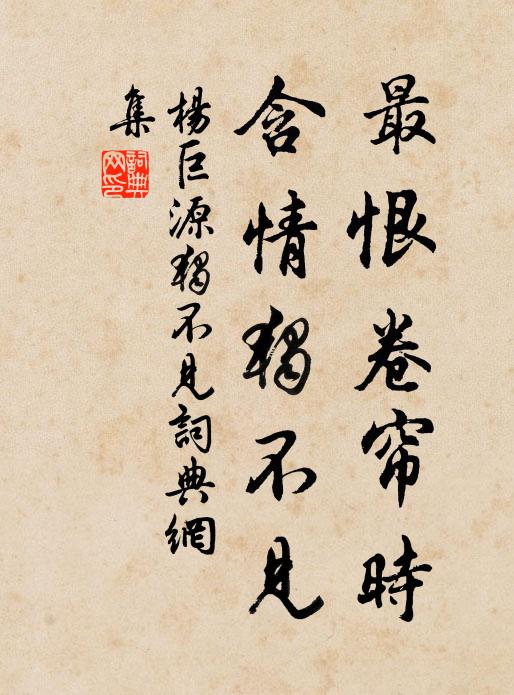 最恨卷帘時
含情獨不見
楊巨源獨不見詞典網
集
詞典
网印